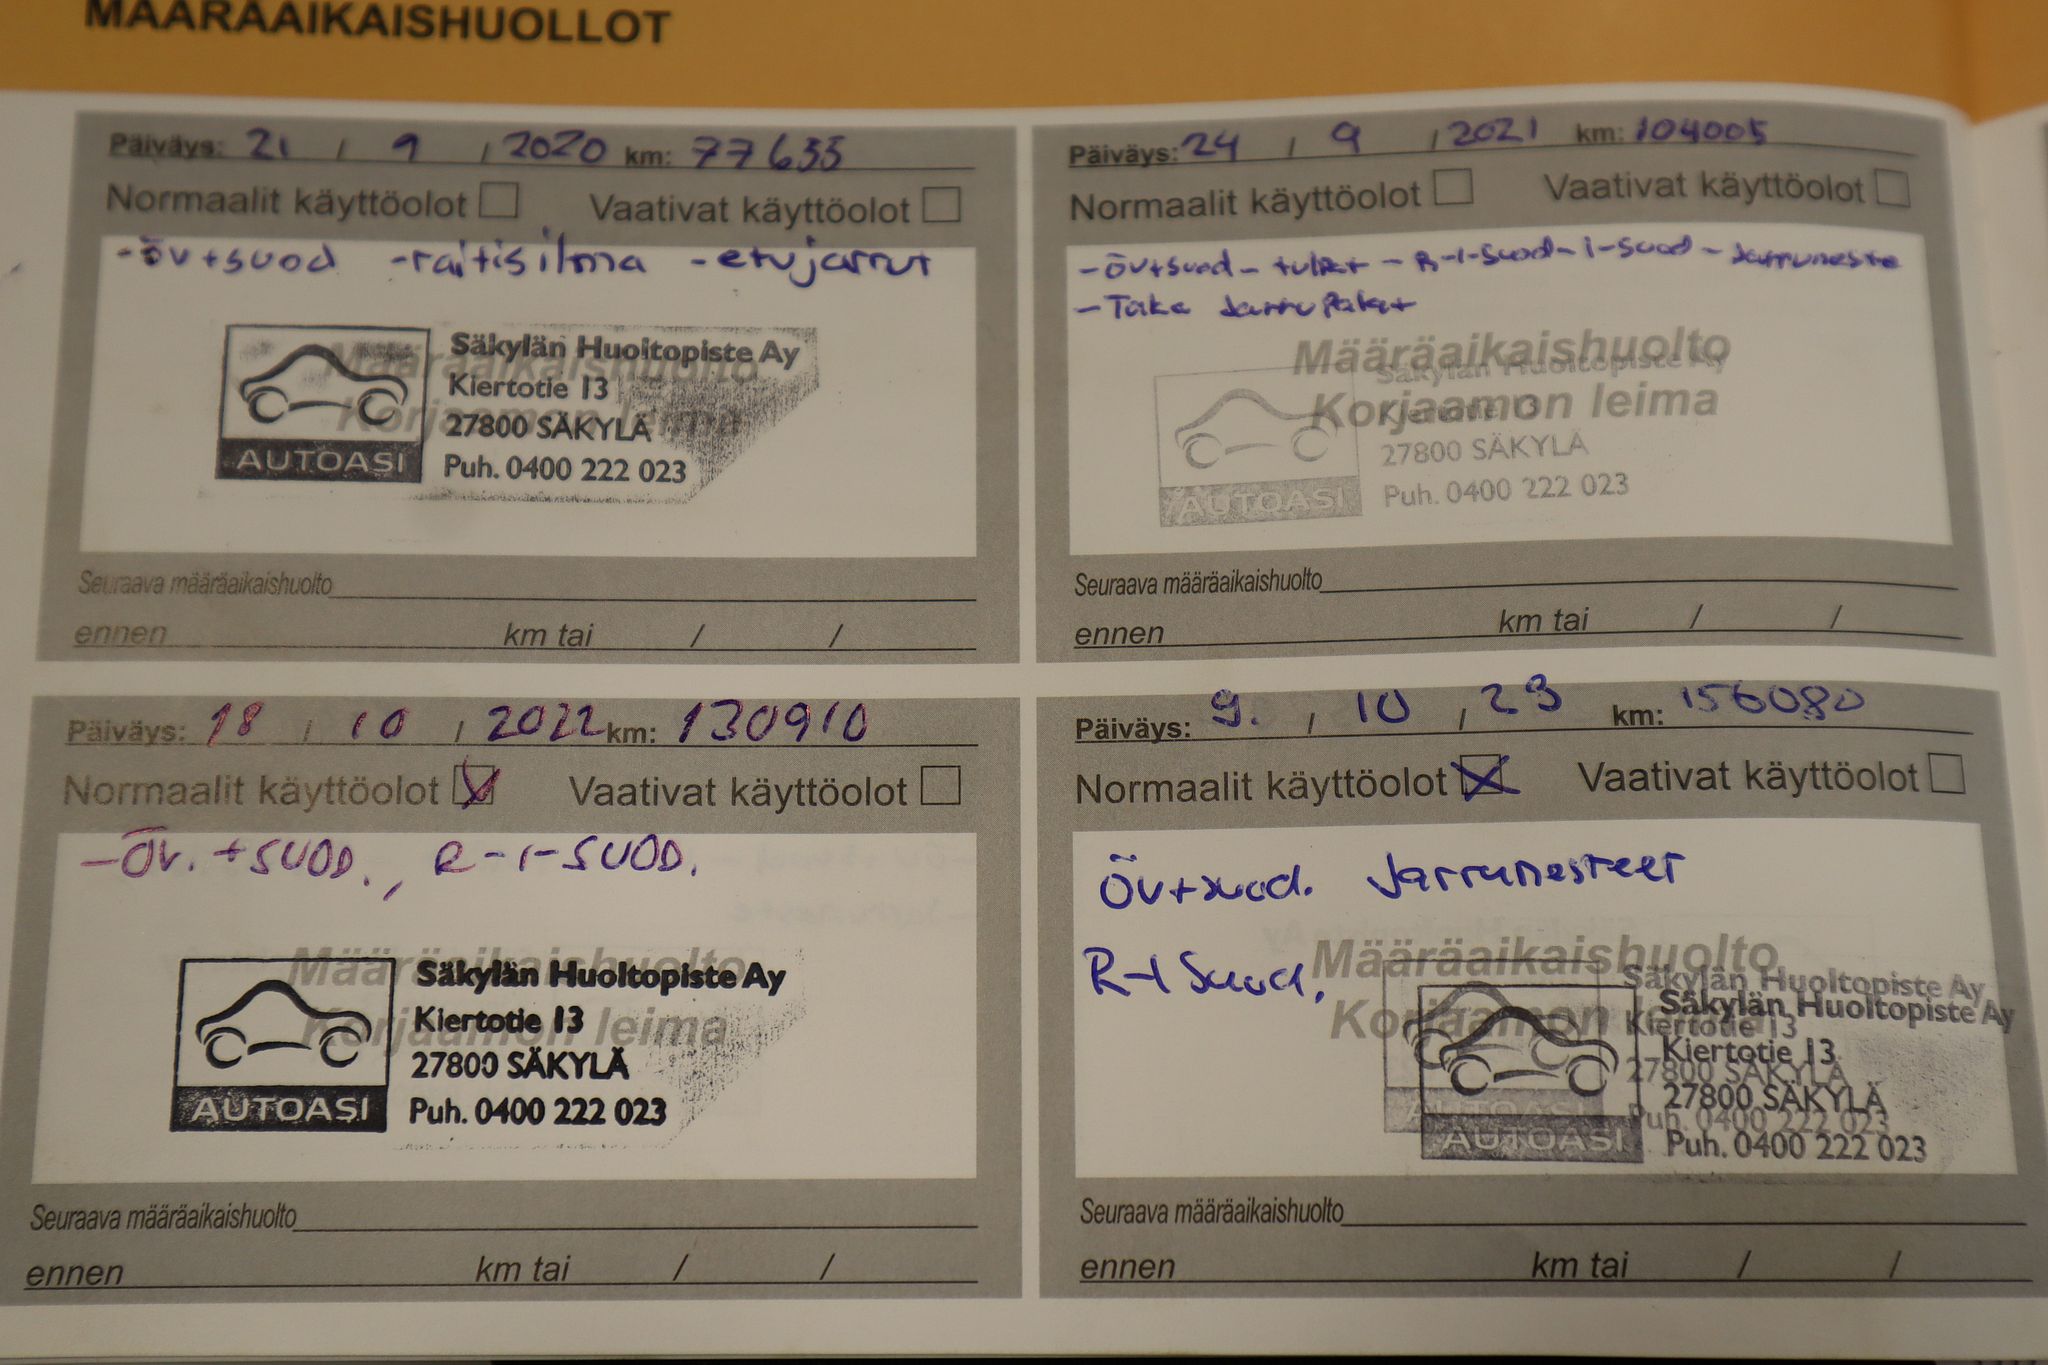 MÄÄRÄAIKAISHUOLLOT
Päiväys: 21 / 9 / 2020 km: 77635
Normaalit käyttöolot Vaativat käyttöolot
-öv+suod -raitisilma -etujarrut
Määräaikaishuolto
Korjaamon leima
AUTOASI
Säkylän Huoltopiste Ay
Kiertotie 13
27800 SÄKYLÄ
Puh. 0400 222 023
Seuraava määräaikaishuolto
ennen km tai / /
Päiväys: 24 / 9 / 2021 km: 104005
Normaalit käyttöolot Vaativat käyttöolot
-öv+suod - tulpat - R-i-suod - i-suod - Jarruneste
- Taka Jarrupalat
Määräaikaishuolto
Korjaamon leima
AUTOASI
Säkylän Huoltopiste Ay
Kiertotie 13
27800 SÄKYLÄ
Puh. 0400 222 023
Seuraava määräaikaishuolto
ennen km tai / /
Päiväys: 18 / 10 / 2022 km: 130910
Normaalit käyttöolot Vaativat käyttöolot
-ÖV. +SUOD., R-I-SUOD.
Määräaikaishuolto
Korjaamon leima
AUTOASI
Säkylän Huoltopiste Ay
Kiertotie 13
27800 SÄKYLÄ
Puh. 0400 222 023
Seuraava määräaikaishuolto
ennen km tai / /
Päiväys: 9. / 10 / 23 km: 156080
Normaalit käyttöolot Vaativat käyttöolot
Öv+suod. Jarrunesteet
R-I Suod.
Määräaikaishuolto
Korjaamon leima
AUTOASI
Säkylän Huoltopiste Ay
Kiertotie 13
27800 SÄKYLÄ
Puh. 0400 222 023
AUTOASI
Säkylän Huoltopiste Ay
Kiertotie 13
27800 SÄKYLÄ
Puh. 0400 222 023
Seuraava määräaikaishuolto
ennen km tai / /